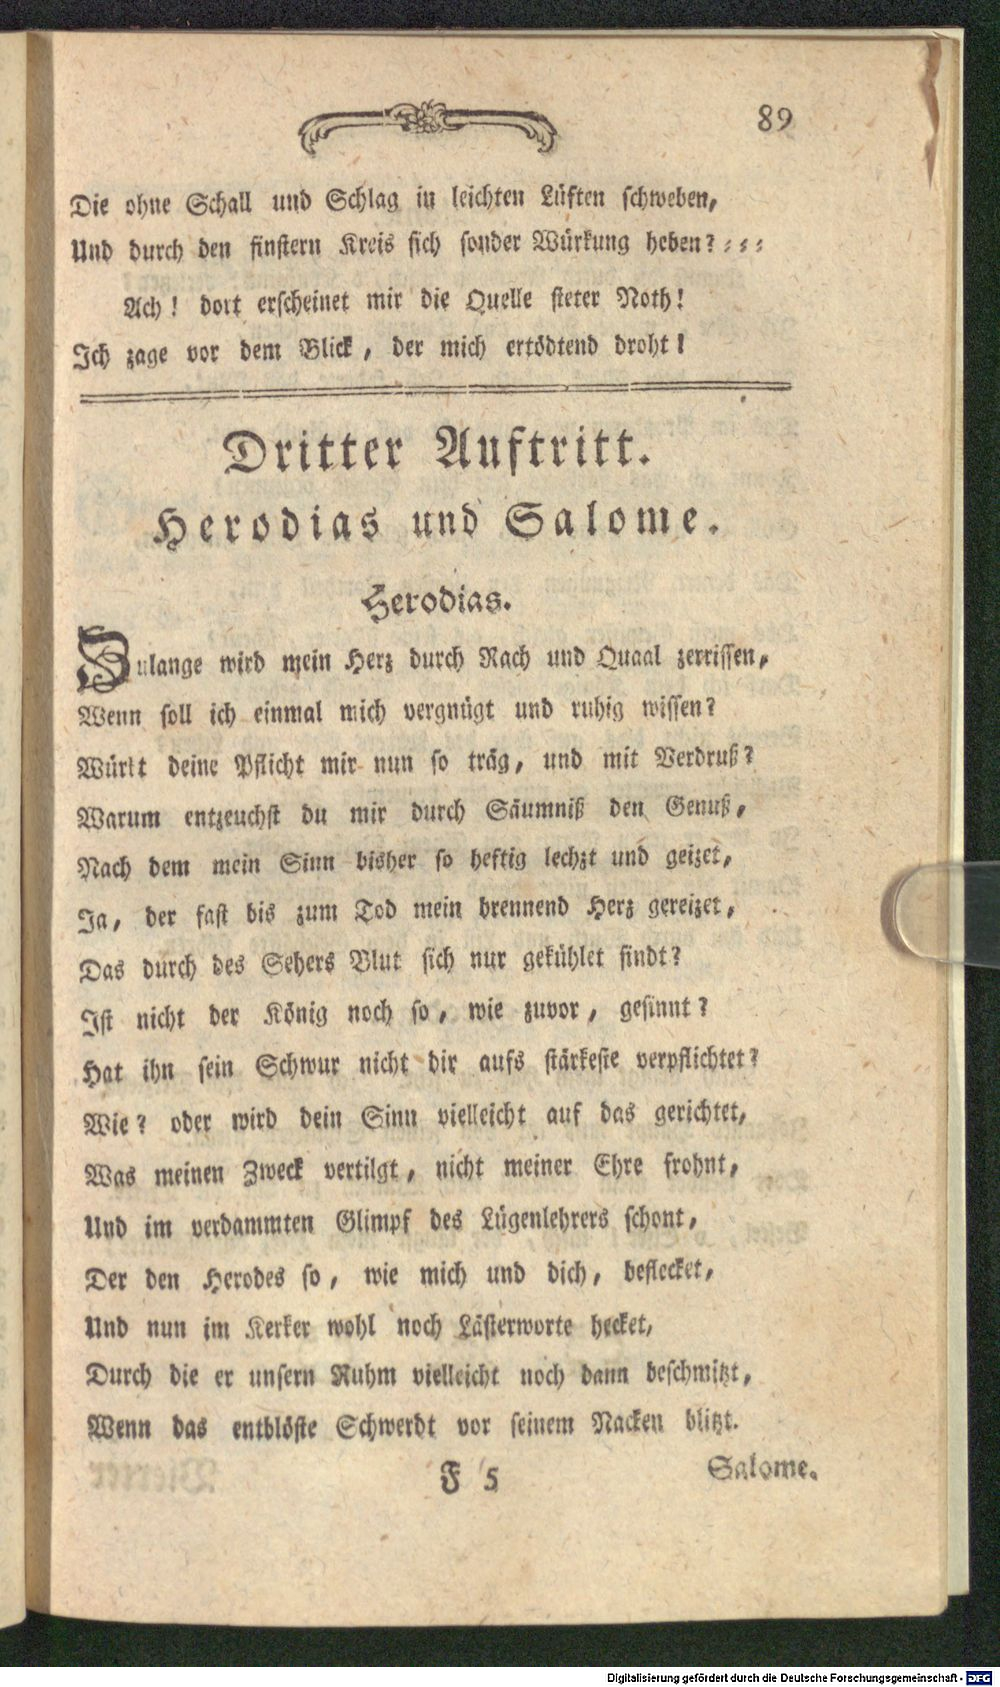 89
Die ohne Schall und Schlag in leichten Lüften schweben,
Und durch den finstern Kreis sich sonder Würkung heben? ⸗ ⸗ ⸗
Ach! dort erscheinet mir die Quelle steter Noth!
Ich zage vor dem Blick, der mich ertödtend droht!
Dritter Auftritt.
Herodias und Salome.
Herodias.
Zulange wird mein Herz durch Rach und Quaal zerrissen,
Wenn soll ich einmal mich vergnügt und ruhig wissen?
Würkt deine Pflicht mir nun so träg, und mit Verdruß?
Warum entzeuchst du mir durch Säumniß den Genuß,
Nach dem mein Sinn bisher so heftig lechzt und geizet,
Ja, der fast bis zum Tod mein brennend Herz gereizet,
Das durch des Sehers Blut sich nur gekühlet findt?
Ist nicht der König noch so, wie zuvor, gesinnt?
Hat ihn sein Schwur nicht dir aufs stärkeste verpflichtet?
Wie? oder wird dein Sinn vielleicht auf das gerichtet,
Was meinen Zweck vertilgt, nicht meiner Ehre frohnt,
Und im verdammten Glimpf des Lügenlehrers schont,
Der den Herodes so, wie mich und dich, beflecket,
Und nun im Kerker wohl noch Lästerworte hecket,
Durch die er unsern Ruhm vielleicht noch dann beschmitzt,
Wenn das entblöste Schwerdt vor seinem Nacken blitzt.
F 5 Salome.
Digitalisierung gefördert durch die Deutsche Forschungsgemeinschaft - DFG